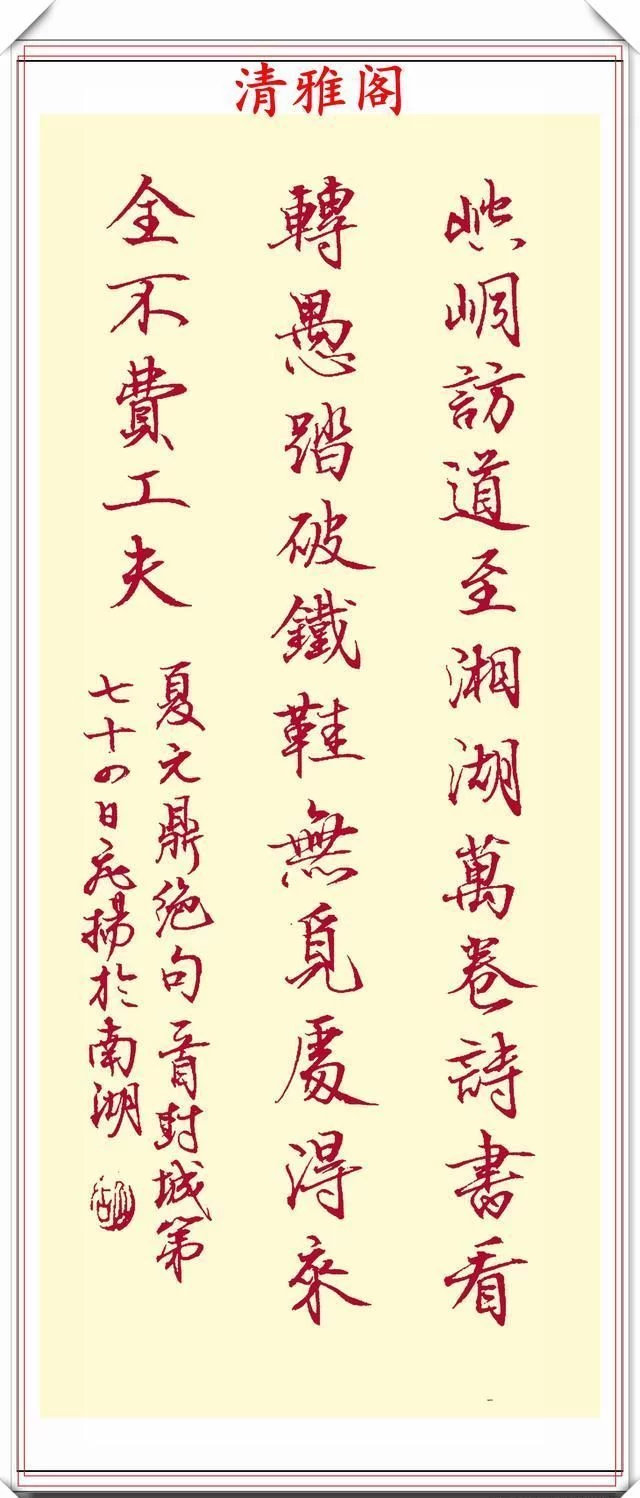 清雅阁
崆峒訪道至湘湖萬卷詩書看
轉愚踏破鐵鞋無覓處得來
全不費工夫
夏元鼎絕句一首封城第
七十四日飛揚於南湖